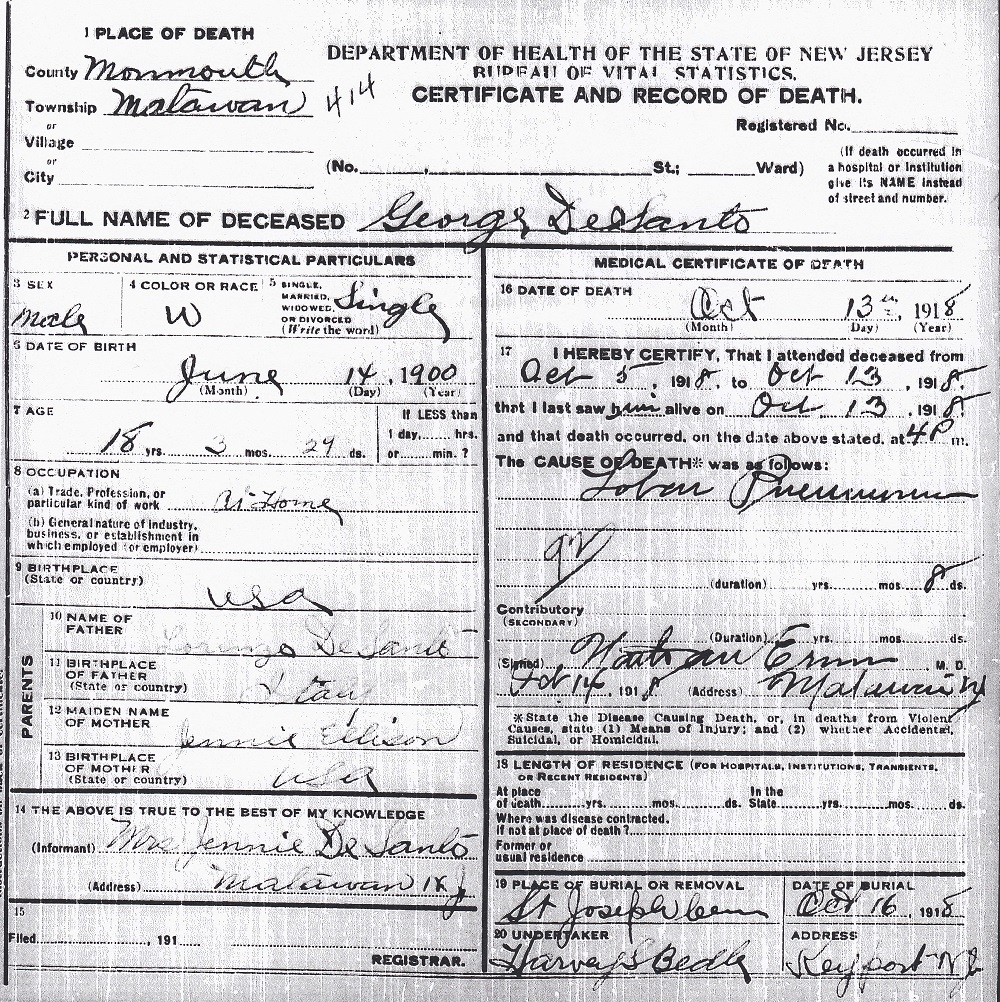 1 PLACE OF DEATH
County Monmouth
Township Matawan
414
or
Village
or
City
DEPARTMENT OF HEALTH OF THE STATE OF NEW JERSEY
BUREAU OF VITAL STATISTICS.
CERTIFICATE AND RECORD OF DEATH.
Registered No.
(No. , St.; Ward)
(If death occurred in
a hospital or institution
give its NAME instead
of street and number.
2 FULL NAME OF DECEASED George DeSanto
PERSONAL AND STATISTICAL PARTICULARS
3 SEX
Male
4 COLOR OR RACE
W
5 SINGLE,
MARRIED,
WIDOWED,
OR DIVORCED
(Write the word)
Single
6 DATE OF BIRTH
June 14, 1900
(Month) (Day) (Year)
7 AGE
18 yrs. 3 mos. 29 ds.
If LESS than
1 day,...... hrs.
or...... min. ?
8 OCCUPATION
(a) Trade, Profession, or
particular kind of work At Home
(b) General nature of industry,
business, or establishment in
which employed (or employer)
9 BIRTHPLACE
(State or country)
USA
PARENTS
10 NAME OF
FATHER
Lorenzo DeSanto
11 BIRTHPLACE
OF FATHER
(State or country)
Italy
12 MAIDEN NAME
OF MOTHER
Jennie Ellison
13 BIRTHPLACE
OF MOTHER
(State or country)
USA
14 THE ABOVE IS TRUE TO THE BEST OF MY KNOWLEDGE
(Informant) Mrs Jennie DeSanto
(Address) Matawan NJ
15
Filed , 191
REGISTRAR.
MEDICAL CERTIFICATE OF DEATH
16 DATE OF DEATH
Oct 13th, 1918
(Month) (Day) (Year)
17 I HEREBY CERTIFY, That I attended deceased from
Oct 5, 1918, to Oct 13, 1918,
that I last saw him alive on Oct 13, 1918
and that death occurred, on the date above stated, at 4 P m.
The CAUSE OF DEATH* was as follows:
Lobar Pneumonia
(duration) yrs. mos. 8 ds.
Contributory
(SECONDARY)
(Duration) yrs. mos. ds.
(Signed) M. D.
14, 1918 (Address) Matawan NJ
*State the Disease Causing Death, or, in deaths from Violent
Causes, state (1) Means of Injury; and (2) whether Accidental,
Suicidal, or Homicidal.
18 LENGTH OF RESIDENCE (FOR HOSPITALS, INSTITUTIONS, TRANSIENTS,
OR RECENT RESIDENTS)
At place
of death yrs. mos. ds.
In the
State yrs. mos. ds.
Where was disease contracted.
if not at place of death?
Former or
usual residence
19 PLACE OF BURIAL OR REMOVAL
St Joseph Cem
DATE OF BURIAL
Oct 16, 1918
20 UNDERTAKER
Harvey S Bedle
ADDRESS
Keyport NJ